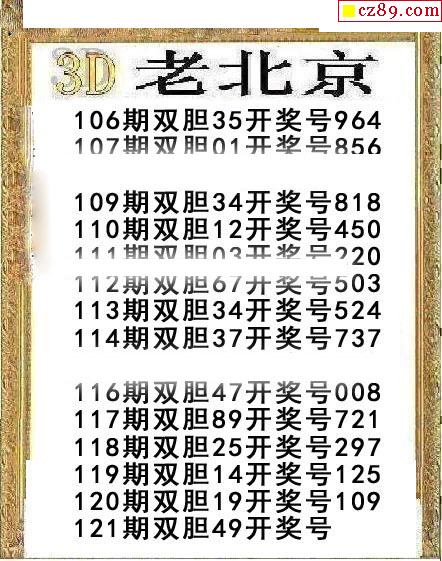 cz89.com
3D 老北京
106期双胆35开奖号964
107期双胆01开奖号856
109期双胆34开奖号818
110期双胆12开奖号450
111期双胆03开奖号220
112期双胆67开奖号503
113期双胆34开奖号524
114期双胆37开奖号737
116期双胆47开奖号008
117期双胆89开奖号721
118期双胆25开奖号297
119期双胆14开奖号125
120期双胆19开奖号109
121期双胆49开奖号